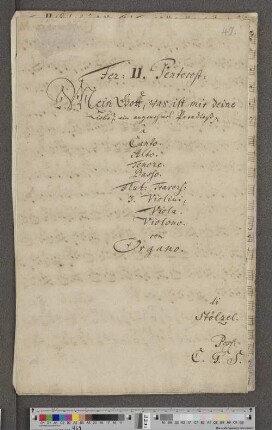 Fer: II. Pentecost.
Mein Gott, was ist mir deine
Liebe ein angenehmes Paradieß,
à
Canto.
Alto.
Tenore.
Basso.
Flut. Travers:
2. Violini,
Viola.
Violono.
con
Organo.
di
Stölzel.
Poss: